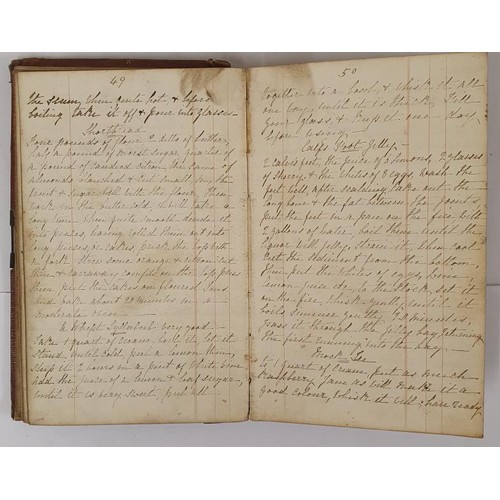 49
the scum, when quite hot & before
boiling take it off & pour into glasses
Shortbread
Four pounds of flour 2 lbs of butter,
half a pound of moist sugar, quarter of
a pound of candied citron, the same of
almonds blanched & cut small, rub the
fruit & sugar with the flour, then
work in the butter cold, it will take a
long time. When quite smooth divide it
into pieces, having rolled them out into
long pieces or cakes, prick the top with
a fork. Strew some orange & citron cut
thin & caraway comfits on the top, pass
them, put the cakes on floured tins
and bake about 20 minutes in a
moderate oven
A Whipt Syllabub very good
Take 1 quart of cream, boil it, let it
stand until cold, pare a lemon thin,
steep it 2 hours in a pint of White wine
add the juice of a lemon & loaf sugar
until it is very sweet, put all
50
together into a bowl, & whisk it all
one way until it is thick, fill
your glass, & keep it one day
before using
Calfs Foot Jelly
2 Calves feet, the juice of 2 lemons, 2 glasses
of Sherry & the Whites of 8 eggs. Wash the
feet well, after scalding take out the
long bone & the fat between the joints,
put the feet in a pan on the fire with
2 gallons of water. Boil them until the
liquor will jelly, strain it, when cool
get the sediment from the bottom,
then put the Whites of eggs, wine,
lemon juice &c to the stock, set it
on the fire, whisk gently until it
boils simmer gently 20 minutes,
pass it through the jelly bag, returning
the first running into the bag
Mock Ice
To 1 quart of Cream, put as much
raspberry Jam as will make it a
good colour, whisk it well; have ready